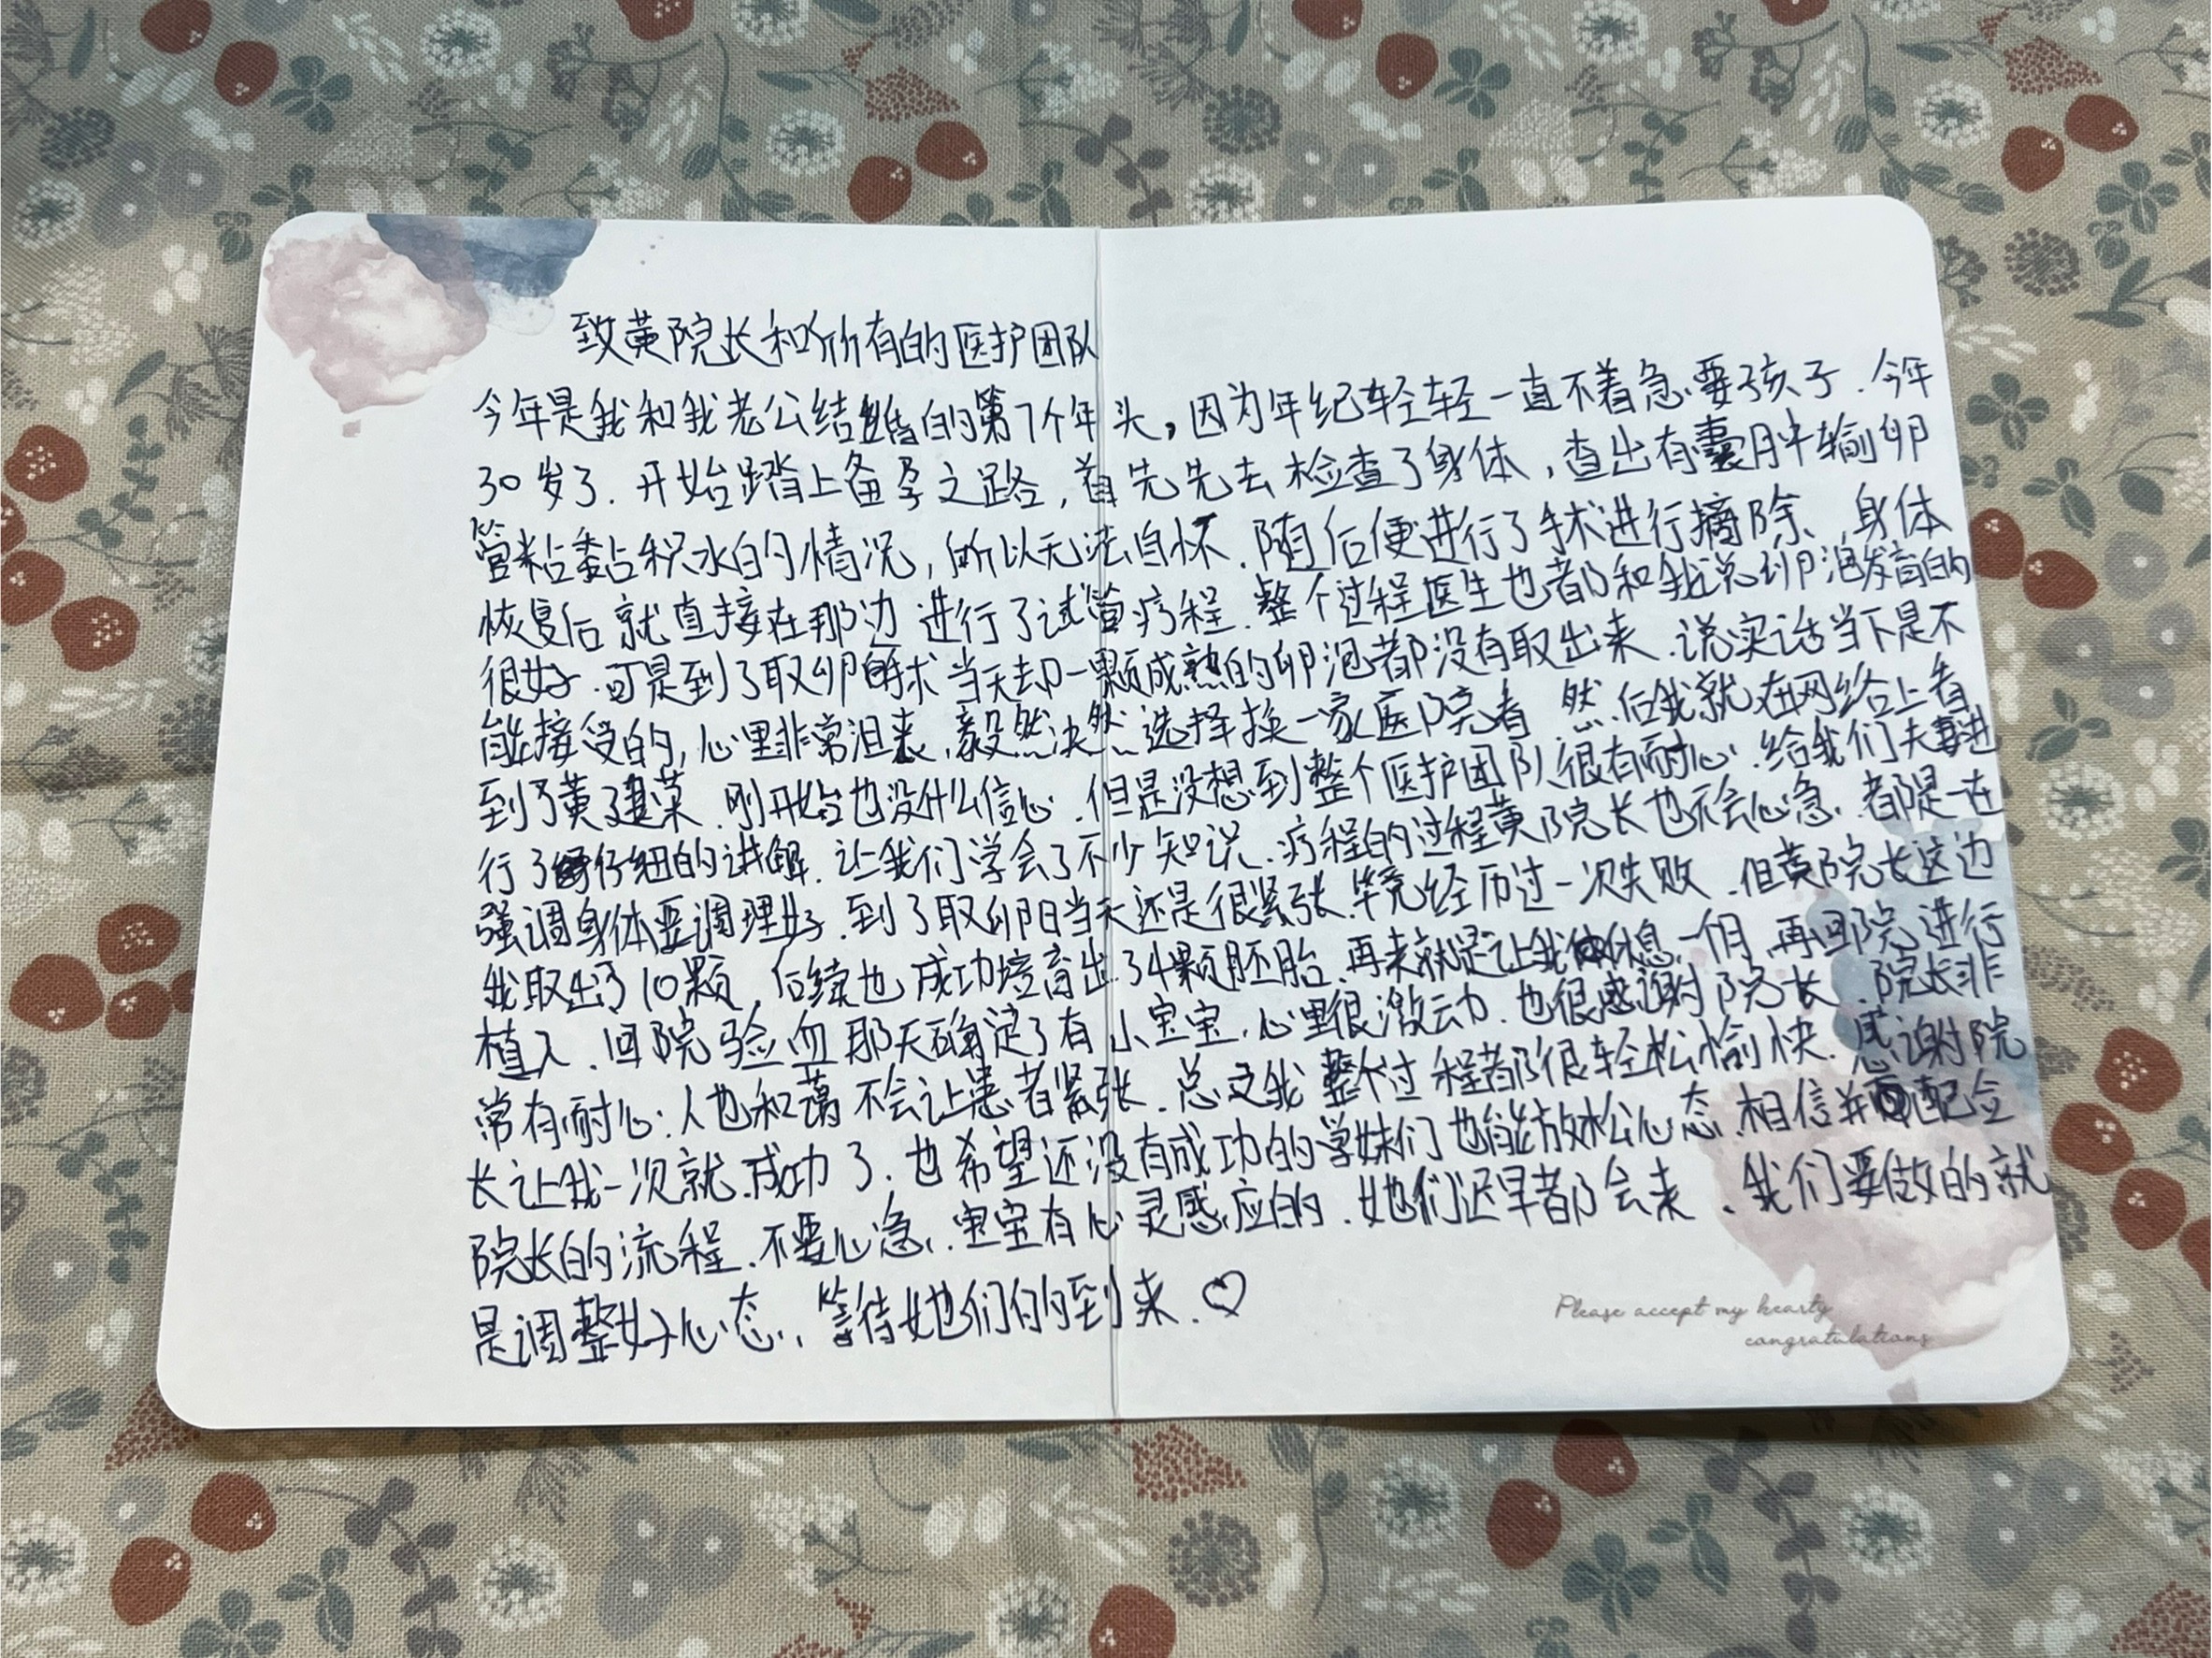 致黄院长和所有的医护团队
今年是我和我老公结婚的第7个年头，因为年纪轻轻一直不着急要孩子.今年
30岁了.开始踏上备孕之路，首先先去检查了身体，查出有囊肿输卵
管粘黏积水的情况，所以无法自怀.随后便进行了手术进行摘除、身体
恢复后就直接在那边进行了试管疗程.整个过程医生也都和我说卵泡发育的
很好.可是到了取卵手术当天却一颗成熟的卵泡都没有取出来.说实话当下是不
能接受的，心里非常沮丧、毅然决然选择换一家医院看 然后我就在网络上看
到了黄建荣.刚开始也没什么信心.但是没想到整个医护团队很有耐心.给我们夫妻进
行了仔细的讲解.让我们学会了不少知识.疗程的过程黄院长也不会心急.都是一在
强调身体要调理好.到了取卵日当天还是很紧张.毕竟经历过一次失败.但黄院长这边
我取出了10颗，后续也成功培育出了4颗胚胎.再来就是让我休息一个月.再回院进行
植入.回院验血那天确定了有小宝宝.心里很激动.也很感谢院长.院长非
常有耐心.人也和蔼不会让患者紧张.总之我整个过程都很轻松愉快.感谢院
长让我一次就成功了.也希望还没有成功的学妹们也能放松心态.相信并配合
院长的流程.不要心急.宝宝有心灵感应的.她们迟早都会来.我们要做的就
是调整好心态.等待她们的到来.♡
Please accept my hearty
congratulations